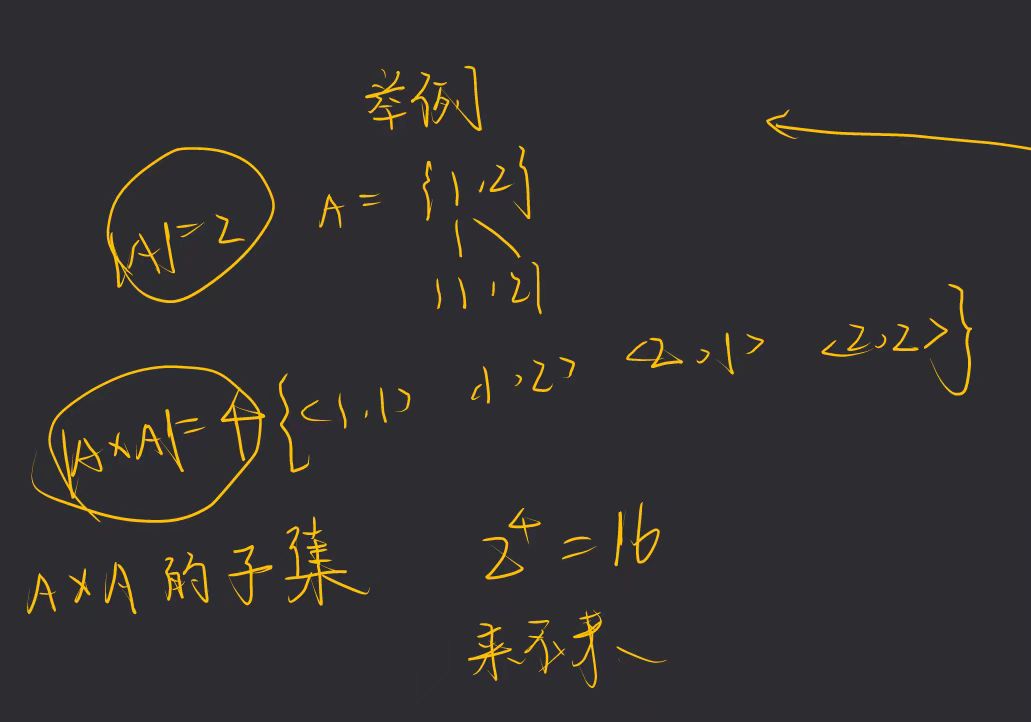 举例
|A|=2 A = {1,2}
1 1,2
|A×A|=4 {<1,1> <1,2> <2,1> <2,2>}
A×A 的子集 2⁴=16
来不来